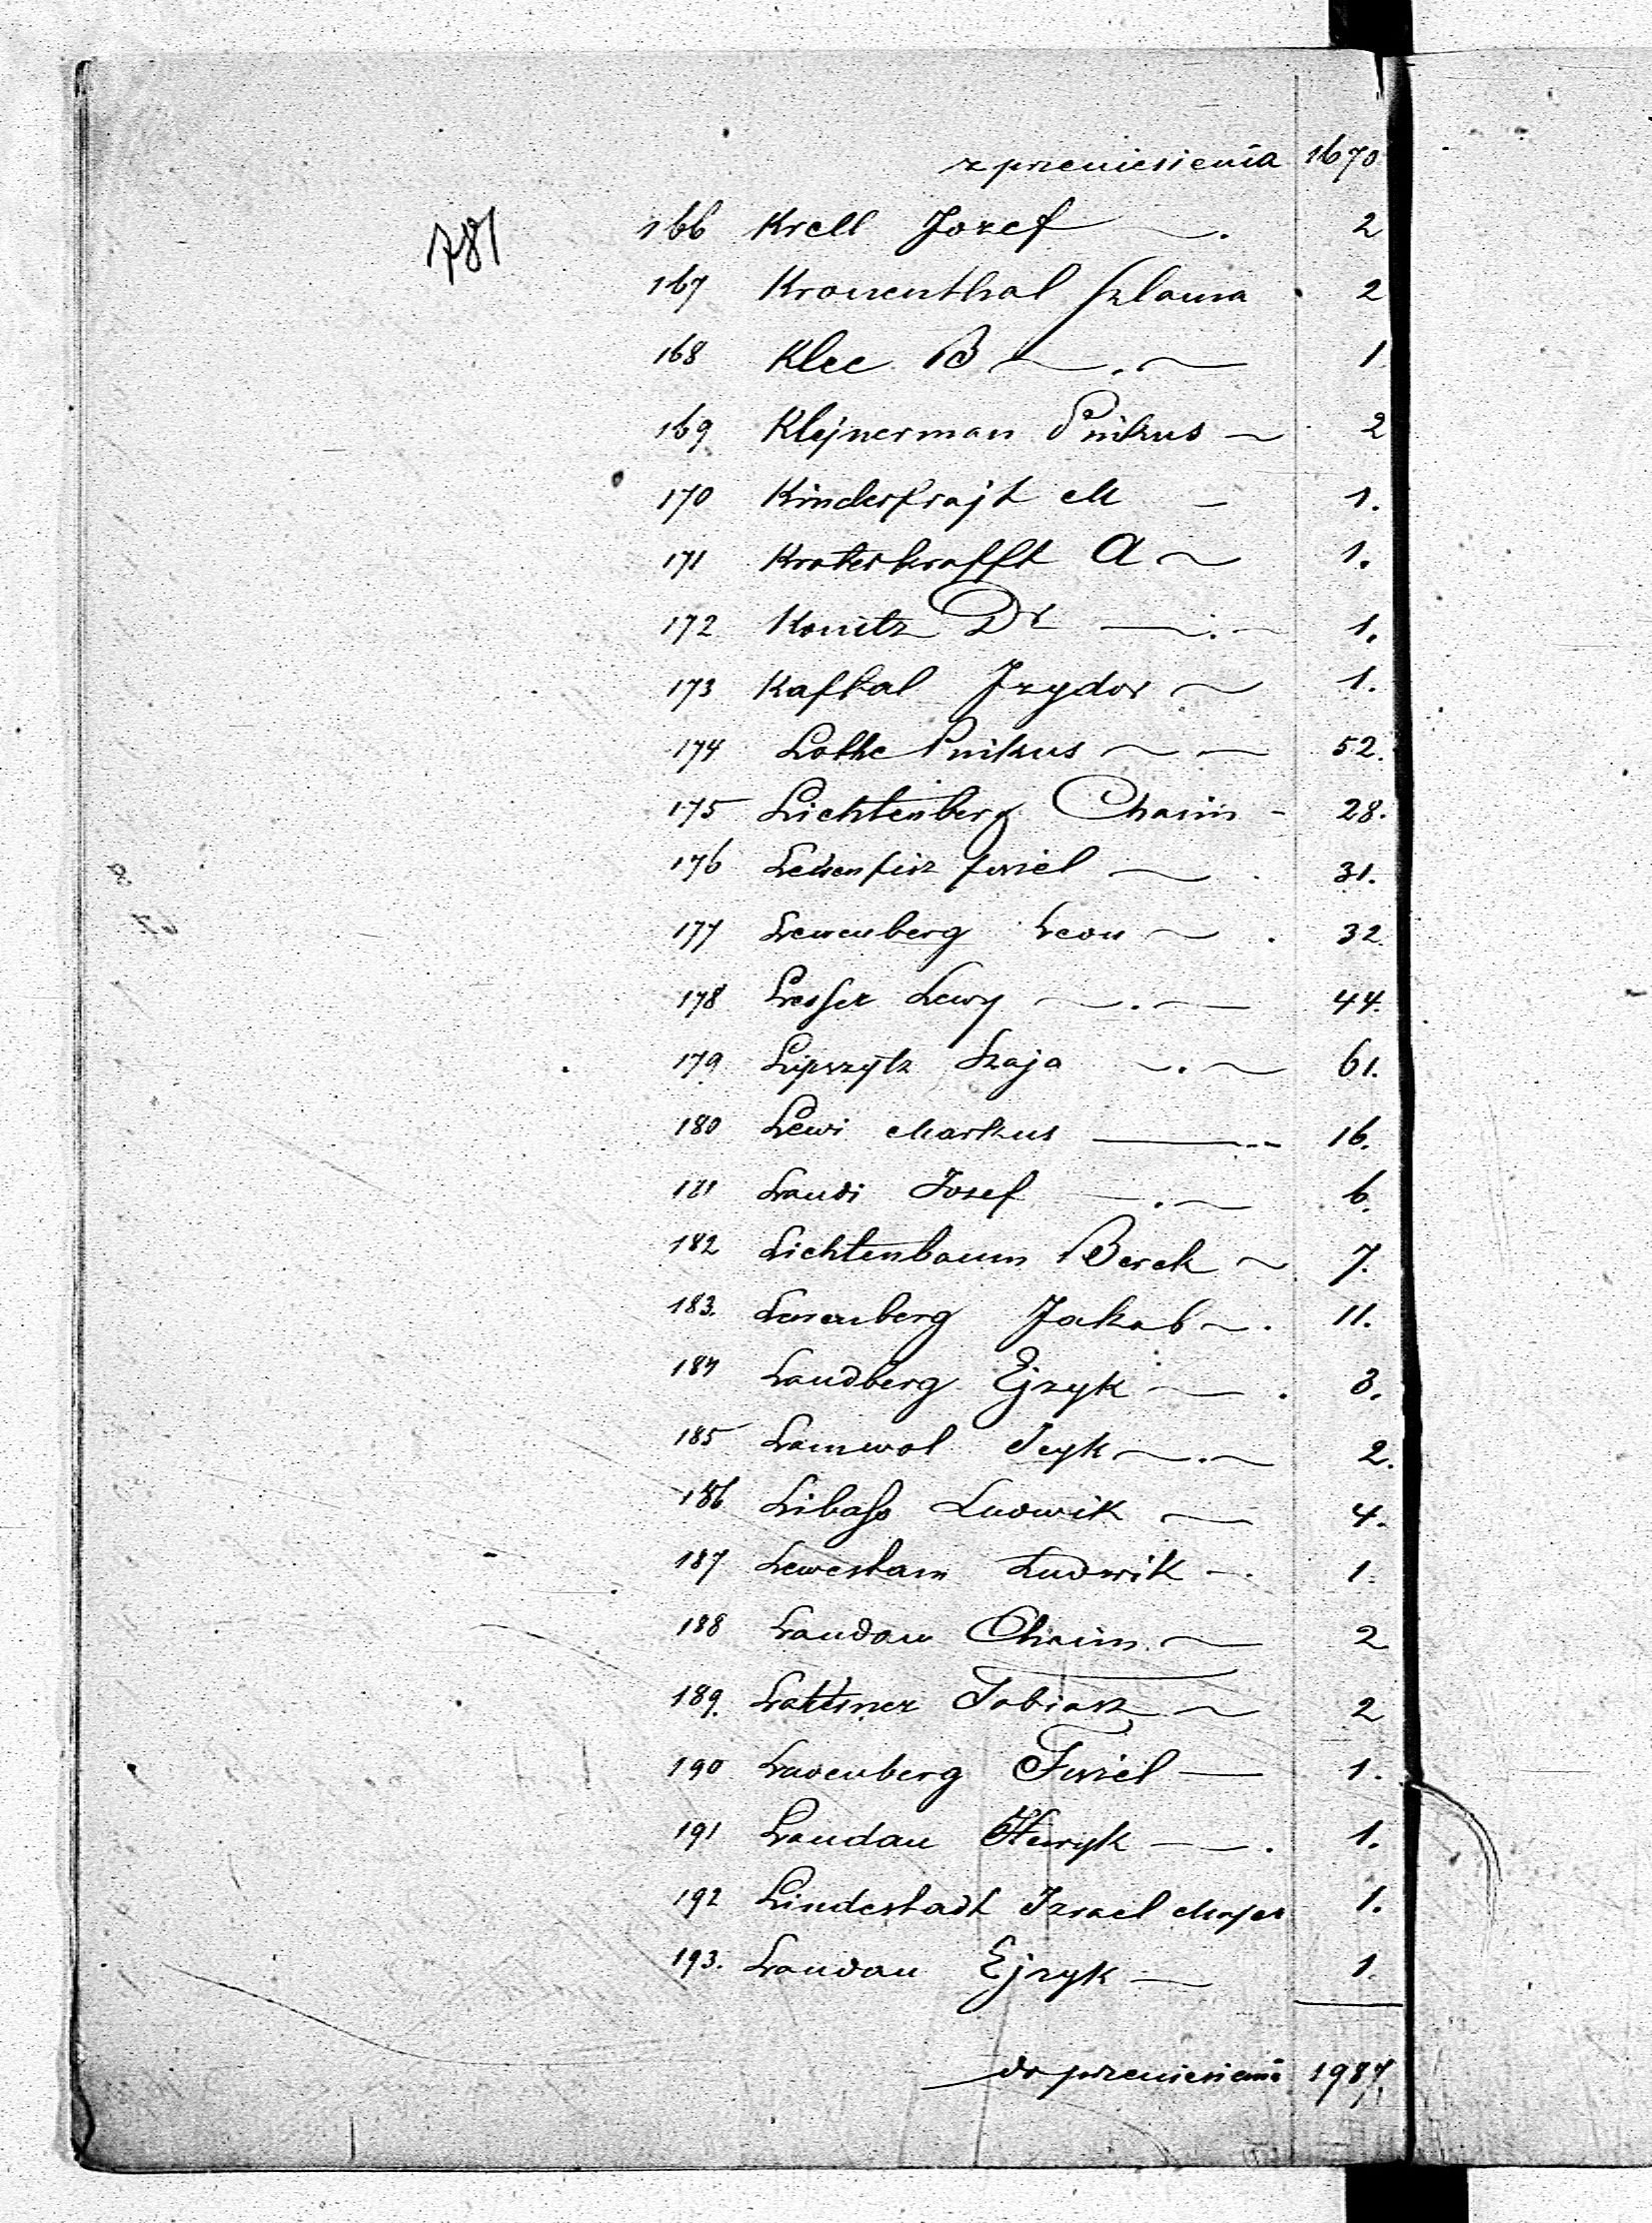 z przeniesienia 1670
781
166 Krell Jozef 2
167 Kronenthal Szlama 2
168 Klee B 1
169 Klejnerman Pinkus 2
170 Kinderfrajt M 1.
171 Kraterkrafft A 1.
172 Konitz Dr 1.
173 Kaftal Izydor 1.
174 Lothe Pinkus 52.
175 Lichtenberg Chaim 28.
176 Lewenfisz Juziel 31.
177 Lewenberg Leon 32
178 Lesser Lewy 44.
179 Lipszytz Szaja 61.
180 Lewi Markus 16.
181 Landi Josef 6.
182 Lichtenbaum Berek 7.
183. Lewenberg Jakob 11.
184 Landberg Ejzyk 3.
185 Lamwol Icyk 2.
186 Libass Ludwik 4.
187 Lewestam Ludwik 1.
188 Landau Chaim 2
189. Lattiner Tobiasz 2
190 Lewenberg Juziel 1.
191 Landau Henryk 1.
192 Lindestadt Izrael Majer 1.
193. Landau Ejzyk 1.
do przeniesienia 1987.